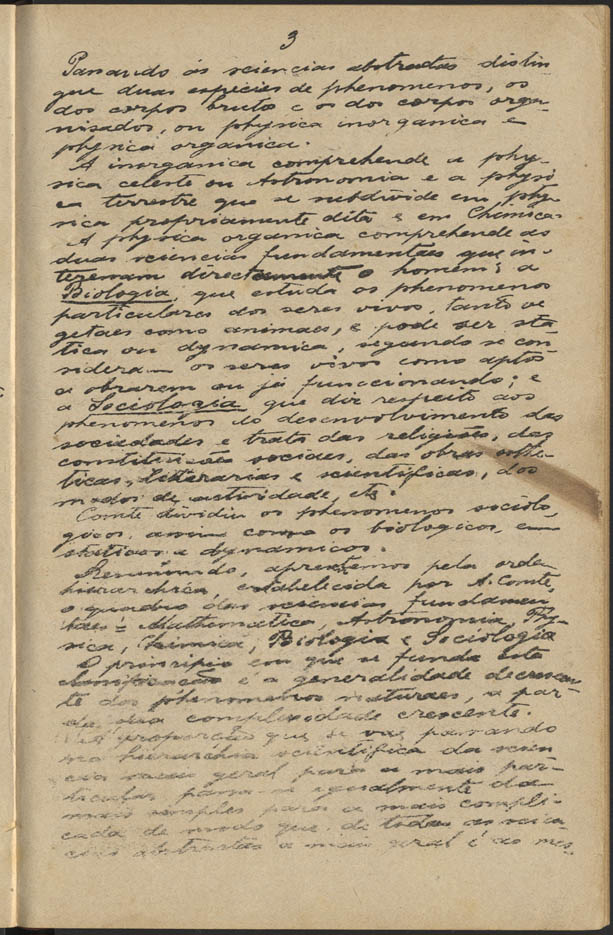 3
Passando ás sciencias abstractas distin
gue duas especies de phenomenos, os
dos corpos brutos e os dos corpos orga-
nisados, ou physica inorganica e
physica organica.
A inorganica comprehende a phy-
sica celeste ou Astronomia e a physi
ca terrestre que se subdivide em phy-
sica propriamente dita e em Chimica
A physica organica comprehende as
duas sciencias fundamentaes que in-
teressam directamente o homem: a
Biologia, que estuda os phenomenos
particulares dos seres vivos, tanto ve
getaes como animaes, e pode ser stá
tica ou dynamica, segundo se con
sidera os seres vivos como aptos
a obrarem ou já funccionando; e
a Sociologia que diz respeito aos
phenomenos do desenvolvimento das
sociedades e trata das religiões, das
constituições sociaes, das obras esthe-
ticas, litterarias e scientificas, dos
modos de actividade, etc.
Comte dividiu os phenomenos sociolo
gicos, assim como os biologicos, em
staticos e dynamicos.
Resumindo, apresentemos pela orde
hierarchica, estabelecida por A. Comte,
o quadro das sciencias fundamen
taes: Mathematica, Astronomia, Phy-
sica, Chimica, Biologia e Sociologia
O principio em que se funda esta
classificação é a generalidade decrescen
te dos phenomenos naturaes, a par
da sua complexidade crescente.
A proporção que se vae passando
na hierarchia scientifica da scien
cia mais geral para a mais par-
ticular passa-se igualmente da
mais simples para a mais compli-
cada de modo que de todas as scien-
cias abstractas a mais geral é ao mes-